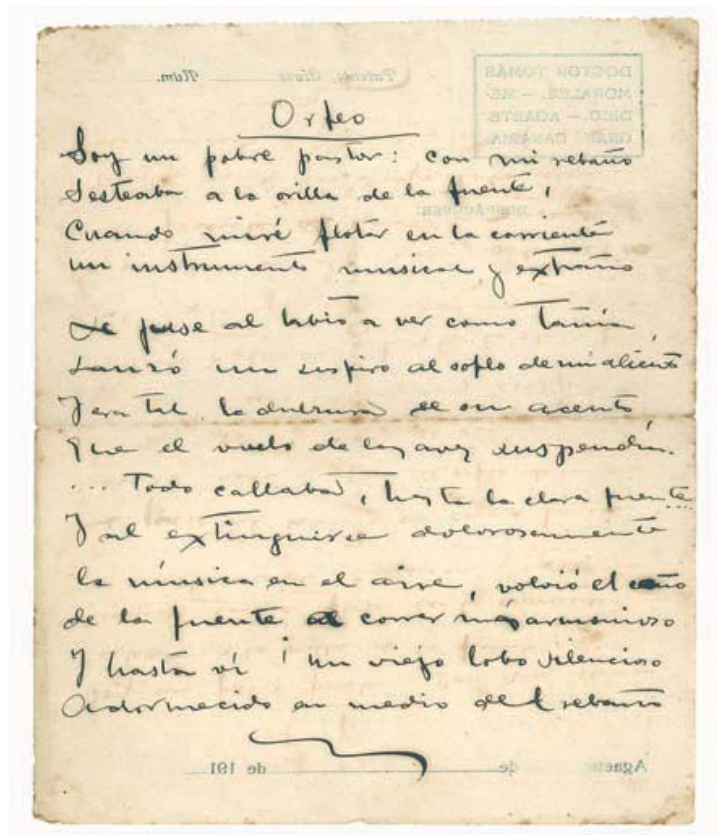 Orfeo
Soy un pobre pastor: con mi rebaño
Sesteaba a la orilla de la fuente,
Cuando miré flotar en la corriente
un instrumento musical y extraño
Le puse al labio a ver como tañía
Lanzó un suspiro al soplo de mi aliento
Y era tal la dulzura de su acento
Que el vuelo de las aves suspendía.
... Todo callaba, hasta la clara fuente...
Y al extinguirse dolorosamente
la música en el aire, volvió el caño
de la fuente a correr más armonioso
Y hasta vi ¡ un viejo lobo silencioso
Adormecido en medio del rebaño
DOCTOR TOMÁS
MORALES. — MÉ-
DICO. — AGAETE-
GRAN CANARIA.
Núm.
Agaete de de 191